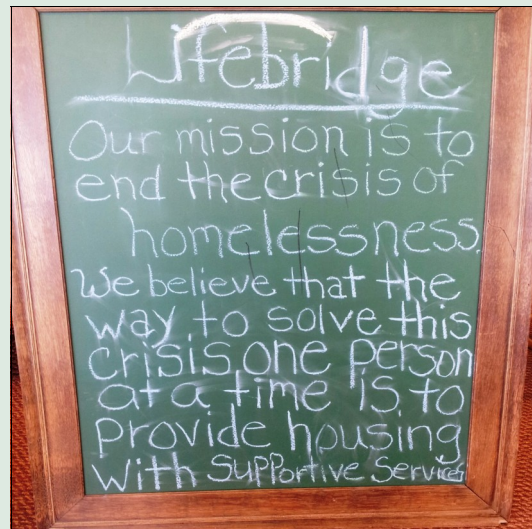 Lifebridge
Our mission is to
end the crisis of
homelessness.
We believe that the
way to solve this
crisis, one person
at a time is to
provide housing
with supportive services